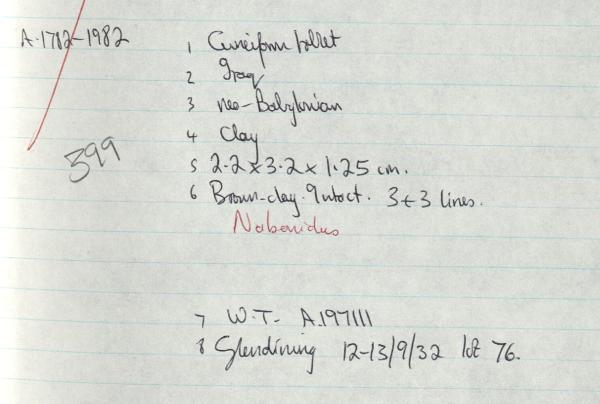 A.1782-1982
1 Cuneiform tablet
2 Iraq
3 neo-Babylonian
4 Clay
399
5 2.2 x 3.2 x 1.25 cm.
6 Brown-clay. Intact. 3+3 lines.
Nabonidus
7 W.T- A.197111
8 Glendining 12-13/9/32 lot 76.